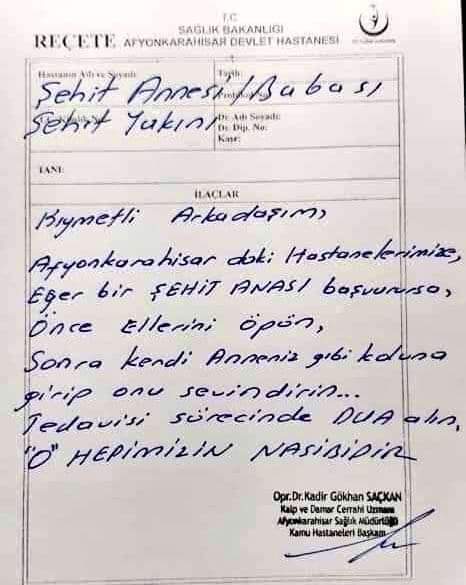 T.C.
SAĞLIK BAKANLIĞI
REÇETE AFYONKARAHİSAR DEVLET HASTANESİ
Hastanın Adı ve Soyadı:
Tarih:
Şehit Annesi/Babası
Şehit Yakını
Dr. Adı Soyadı:
Dr. Dip. No:
Kaşe:
TANI:
İLAÇLAR
Kıymetli Arkadaşım,
Afyonkarahisar daki Hastanelerimize,
Eğer bir ŞEHİT ANASI başvurursa,
Önce Ellerini öpün,
Sonra kendi Anneniz gibi koluna
girip onu sevindirin...
Tedavisi sürecinde DUA alın,
"O" HEPİMİZİN NASİBİDİR
Opr.Dr.Kadir Gökhan SAÇKAN
Kalp ve Damar Cerrahi Uzmanı
Afyonkarahisar Sağlık Müdürlüğü
Kamu Hastaneleri Başkanı